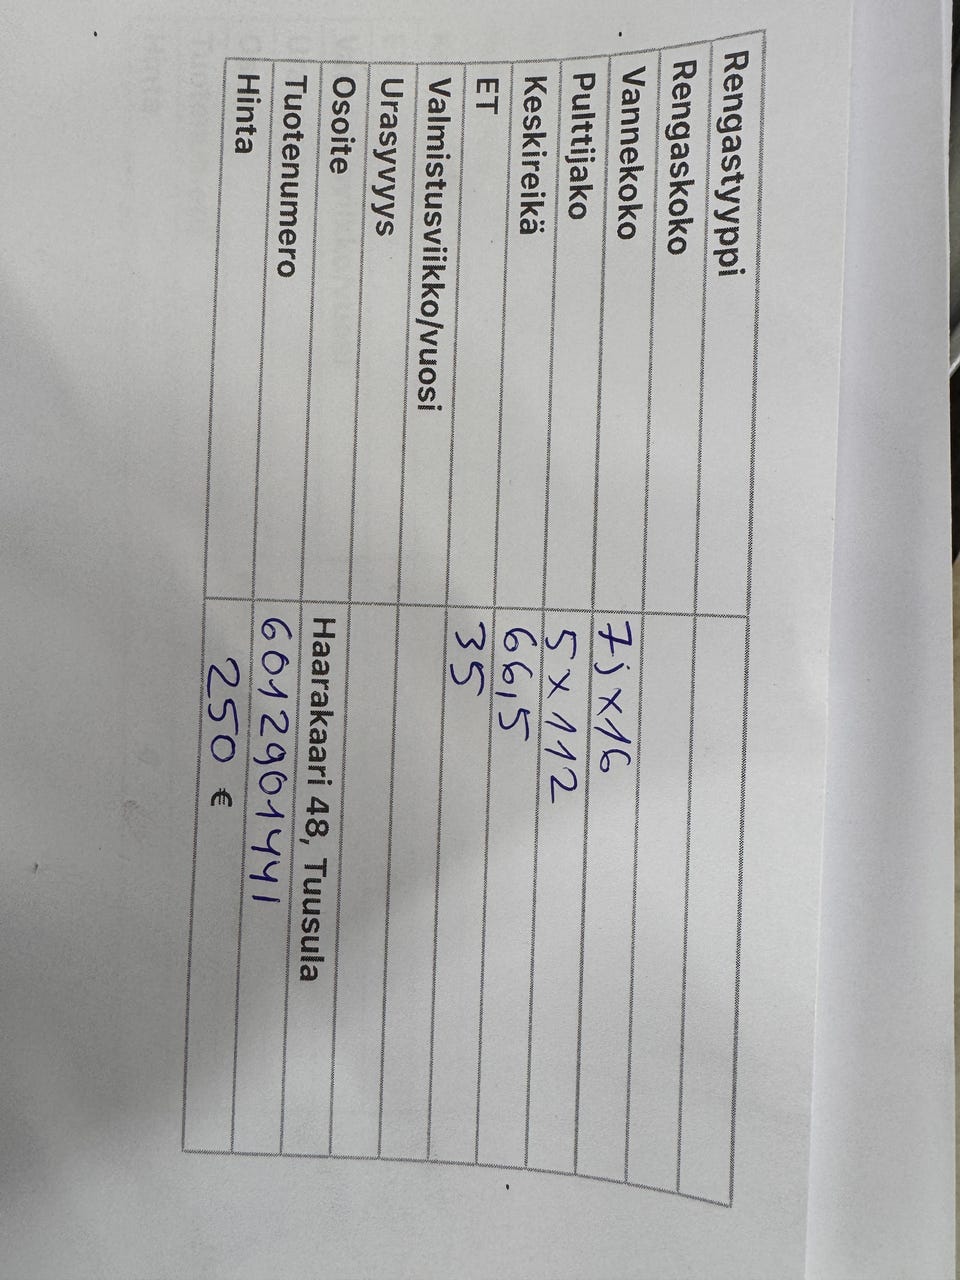 Rengastyyppi
Rengaskoko
Vannekoko 7j x 16
Pulttijako 5 x 112
Keskireikä 66,5
ET 35
Valmistusviikko/vuosi
Urasyvyys
Osoite Haarakaari 48, Tuusula
Tuotenumero 6012901441
Hinta 250 €